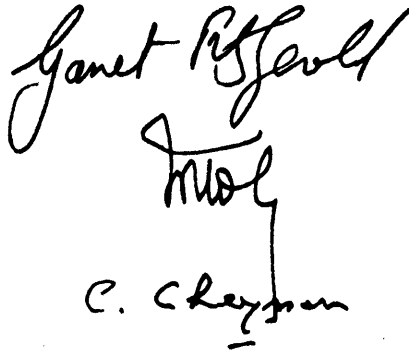 Garret FitzGerald
C. Cheysson